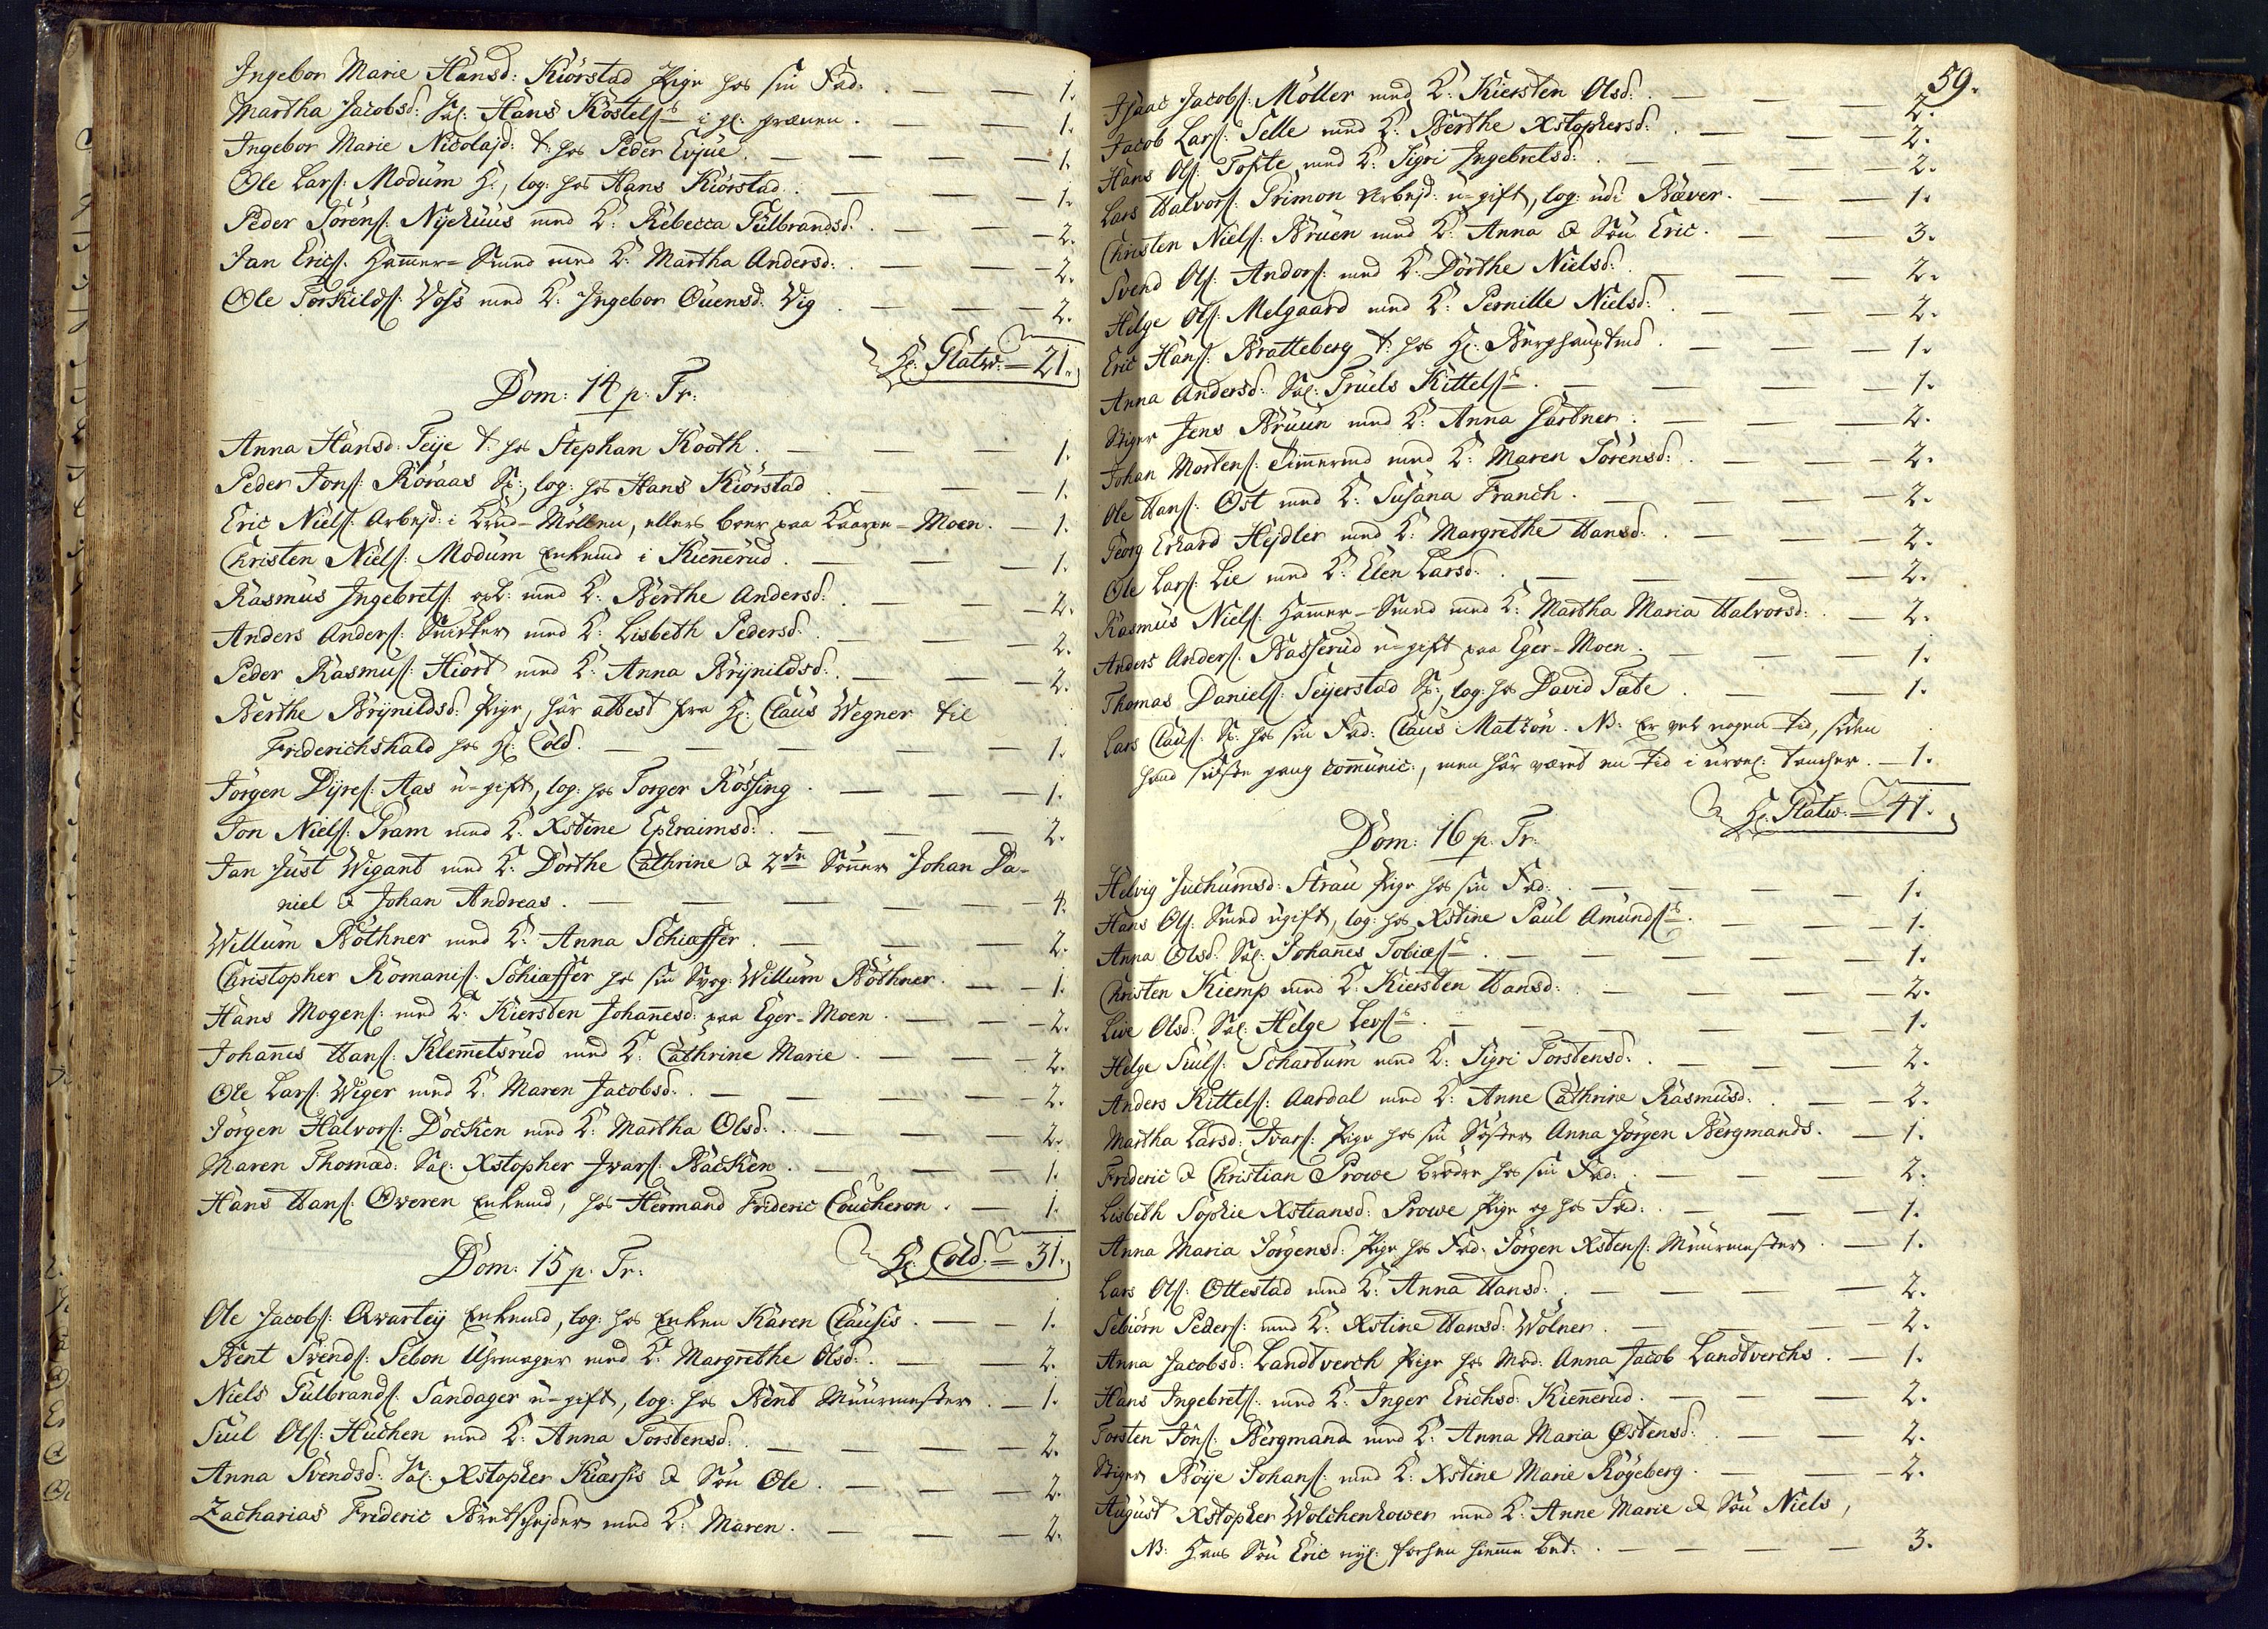 Ingebor Marie Hansd: Kiörstad Pige hos sin Fad: . — — 1.
Martha Jacobsd: Sal: Hans Köstels: i gl: — — 1.
Ingebor Marie Nicolajd: t: hos Peder Evjue. — — — — 1.
Ole Lars: Modum S:, log: hos Hans Kiörstad. — — — 1.
Peder Sörens: Nyehuus med K: Rebecca Gulbrandsd: . — — 2.
Jan Erics: Hammer-Smed med K: Martha Andersd: . — — 2.
Ole Torkilds: Voss med K: Ingebor Ouensd: Vig . — — 2.
Hr: Platw: = 21.
Dom: 14 p. Tr:
Anna Hansd: Teije t: hos Stephan Kooth. — — — — 1.
Peder Jons: Röraas S:, log: hos Hans Kiörstad . — — — 1.
Eric Niels: Arbejd: i Krud-Möllen, ellers boer paa Kaarpe-Moen. — 1.
Christen Niels: Modum Enkemd i Kiennerud. — — — — 1.
Rasmus Ingebrets: med K: Berthe Andersd: . — — — 2.
Anders Anders: Snidker med K: Lisbeth Pedersd: . — — — 2.
Peder Rasmus: Hiort med K: Anna Brynildsd: . — — — 2.
Berthe Brynildsd: Pige, har attest fra Hr: Claus Wegner til
Friderichshald hos Hr: Cold. — — — — — 1.
Jörgen Dyres: Aas u-gift, log: hos Torger Rössing . — — — 1.
Jon Niels: Gram med K: Xstine Ephraimsd: . — — — 2.
Jan Just Wigant med K: Dorthe Cathrine & 2de Sönner Johan Da-
niel & Johan Andreas. — — — — — 4.
Willum Böthner med K: Anna Schiæffer . — — — — 2.
Christopher Romanis: Schiæffer hos sin Svog: Willum Böthner. — — 1.
Hans Mogens: med K: Kiersten Johannesd: paa Eger-Moen. — — — 2.
Johannes Hans: Klemmetsrud med K: Cathrine Marie. — — — 2.
Ole Lars: Wiger med K: Maren Jacobsd: . — — — — 2.
Jörgen Halvors: Docken med K: Martha Olsd: . — — — — 2.
Maren Thomæd: Sal: Xstopher Iwars: Backen . — — — — 1.
Hans Hans: Overen Enkemd, hos Hermand Frideric Coucheron . — 1.
Hr: Cold. = 31.
Dom: 15 p. Tr:
Ole Jacobs: Qvarley Enkemd, log: hos Enken Karen Clausis . — — 1.
Bent Svends: Sebon Uhrmager med K: Margrethe Olsd: . — — 2.
Niels Gulbrands: Sandager u-gift, log: hos Bent Muurmester . — 1.
Siul Ols: Huchen med K: Anna Torstensd: . — — — — 2.
Anna Svendsd: Sal: Xstopher Kiærsis & Sön Ole . — — — 2.
Zacharias Frideric Bretschejder med K: Maren. — — — 2.
59.
Isaac Jacobs: Möller med K: Kiersten Olsd: . — — — 2.
Jacob Lars: Selle med K: Berthe Xstophersd: . — — — 2.
Hans Ols: Tofte med K: Sigri Ingebretsd: . — — — 2.
Lars Halvors: Primon Arbejd: u-gift, log: udi Bæver. — — 1.
Christen Niels: Bruen med K: Anna & Sön Eric. — — — 3.
Svend Ols: Andors: med K: Dorthe Nielsd: . — — — 2.
Helge Ols: Melgaard med K: Pernille Nielsd: . — — — 2.
Eric Hans: Bratteberg t: hos Hr: Berghauptmd . — — — 1.
Anna Andersd: Sal: Truels Kittels: . — — — — 1.
Stiger Jens Bruun med K: Anna Gartner . — — — 2.
Johan Mortens: Timmermd med K: Maren Sörensd: . — — 2.
Ole Hans: Ost med K: Susana Franch. — — — — 2.
Georg Erhard Hejdler med K: Margrethe Hansd: . — — — 2.
Ole Lars: Lie med K: Elen Larsd: . — — — — 2.
Rasmus Niels: Hammer-Smed med K: Martha Maria Halvorsd: . — 2.
Anders Anders: Basserud u-gift paa Eger-Moen. — — — 1.
Thomas Daniels: Seyerstad S:, log: hos David Tate . — — 1.
Lars Claus: S: hos sin Fad: Claus Matzon. NB: Er vel nogen tid, siden
hand sidste gang communic:, men har været en tid i tancher. — 1.
Hr: Platw: = 41.
Dom: 16 p. Tr:
Helvig Juchumsd: Strau Pige hos sin Fad: . — — — 1.
Hans Ols: Smed ugift, log: hos Xstine Paul Amunds: . — — 1.
Anna Olsd: Sal: Johannes Tobiæs: . — — — — 1.
Christen Kiemp med K: Kiersten Hansd: . — — — 2.
Live Olsd: Sal: Helge Levs: . — — — — 1.
Helge Siuls: Schartum med K: Sigri Torstensd: . — — — 2.
Anders Kittels: Aardal med K: Anne Cathrine Rasmusd: . — — 2.
Martha Larsd: Ivars: Pige hos sin Söster Anna Jörgen Bergmands. — 1.
Frideric & Christian Prowe brödre hos sin Fad: . — — — 2.
Lisbeth Sophie Xstiansd: Prowe Pige og hos Fad: . — — — 1.
Anna Maria Jörgensd: Pige hos Fad: Jörgen Xstens: Muurmester . — 1.
Lars Ols: Ottestad med K: Anna Hansd: . — — — — 2.
Sebiörn Peders: med K: Xstine Hansd: Wolner . — — — 2.
Anna Jacobsd: Landtverch Pige hos Mod: Anna Jacob Landtverchs . — 1.
Hans Ingebrets: med K: Inger Erichsd: Kiennerud. — — — 2.
Torsten Jons: Bergmand med K: Anna Maria Østensd: . — — 2.
Stiger Böije Johans: med K: Xstine Marie Rögeberg . — — — 2.
August Xstopher Wolchenhower med K: Anne Marie & Sön Niels,
NB: Hans Sön Eric — — — — 3.